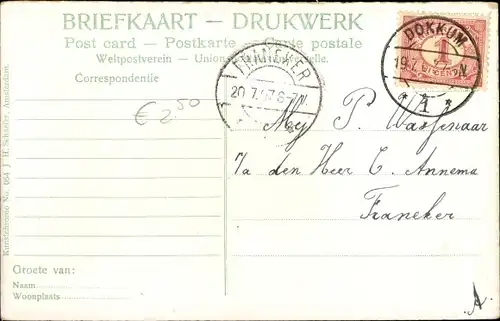 BRIEFKAART — DRUKWERK
Post card — Postkarte — Carte postale
Weltpostverein — Union
Correspondentie
FRANEKER
20.7.17.6-7V
DOKKUM
19.7
N
1
€ 2,50
Mej P. Wassenaar
p/a den Heer C. Annema
Franeker
Groete van:
Naam
Woonplaats
Kunstchromo No. 664 J. H. Schaefer, Amsterdam.
A.